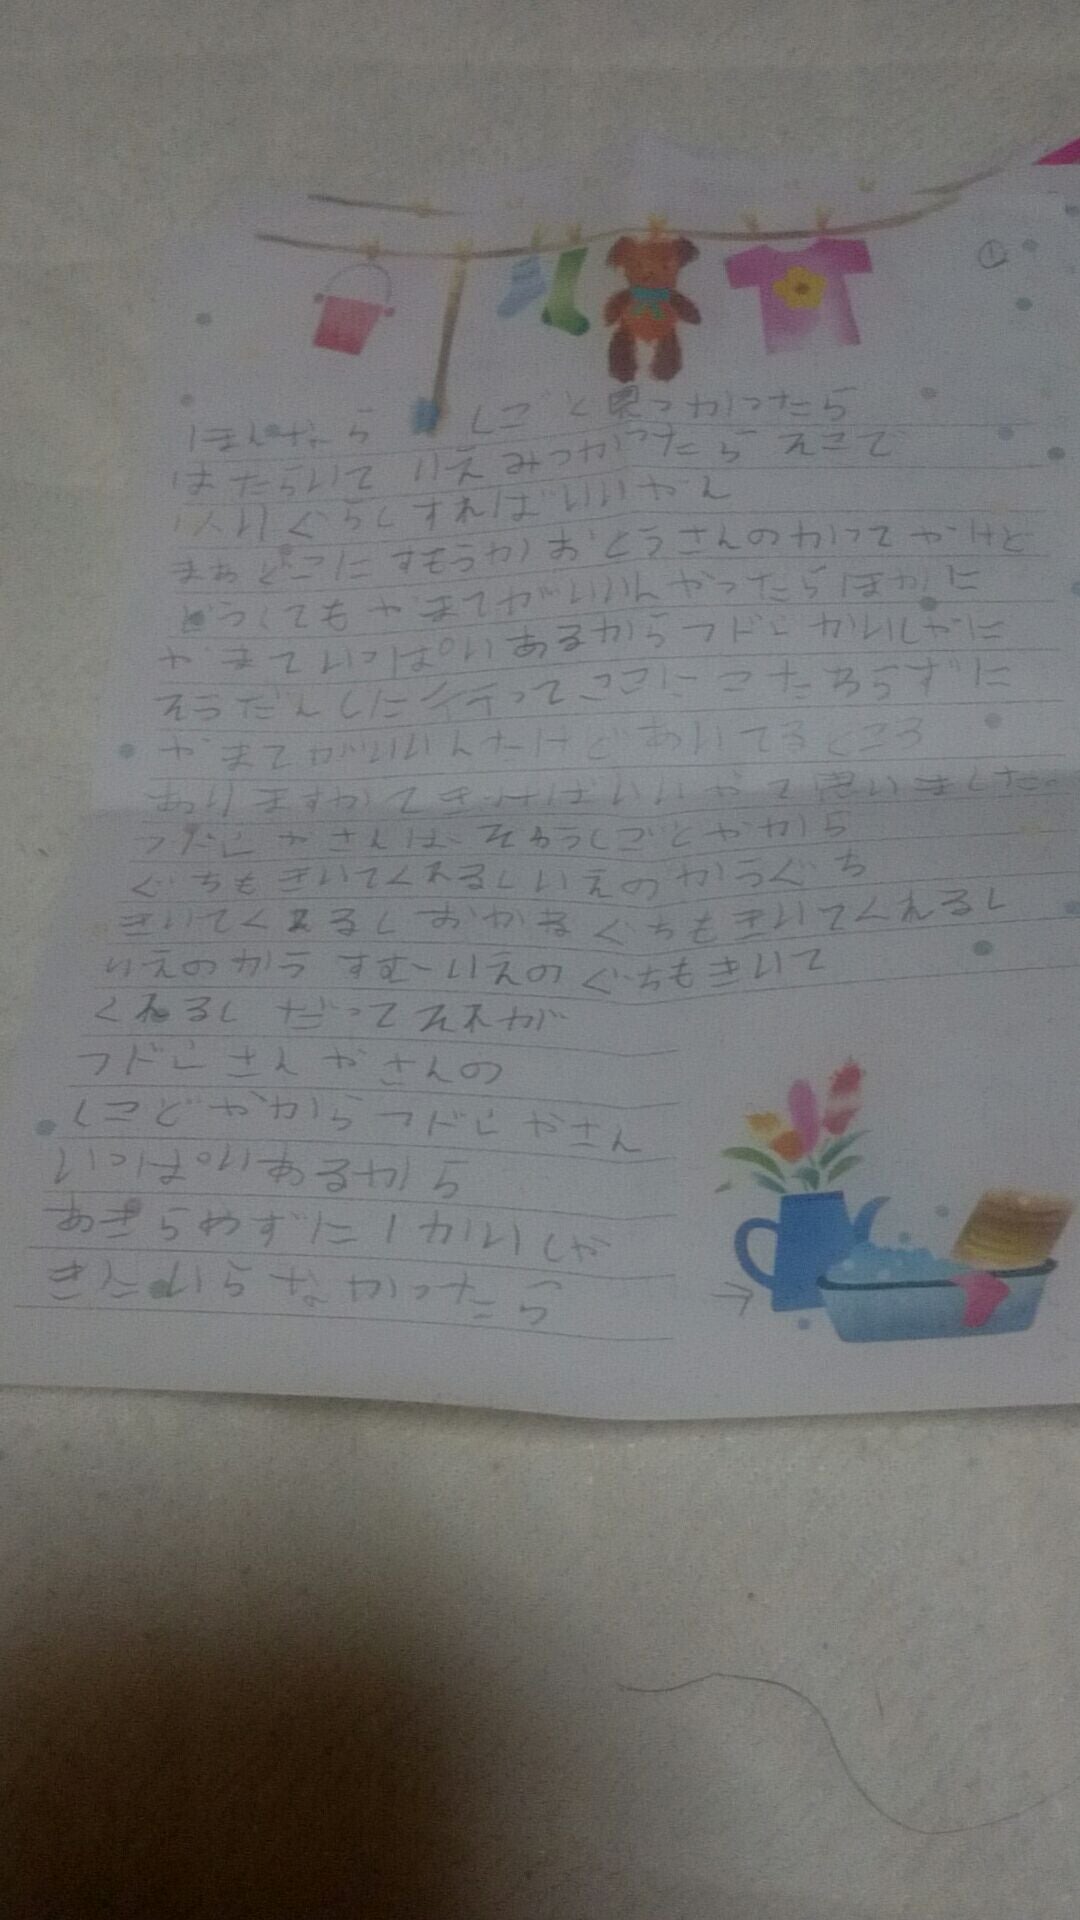 ①
ほんなら しごと見つかったら
はたらいて いえみつかったら そこで
1人りぐらしすればいいやん
まぁどこにすもうがおとうさんのかってやけど
どうしてもやまてがいいんやったらほかに
やまていっぱいあるからフドウかいしゃに
そうだんしに行ってここにこだわらずに
やまてがいいんなけどあいてるところ
ありますかてきけばいいやて思いました。
フドウやさんは、そゆうしごとやから
ぐちもきいてくれるしいえのかうぐち
きいてくれるしおかねぐちもきいてくれるし
いえのかう すむーいえのぐちもきいて
くれるし だってそれが
フドウさんやさんの
しごどやから フドウやさん
いっぱいあるから
あきらめずに1かいしゃ
きにいらなかったら
→